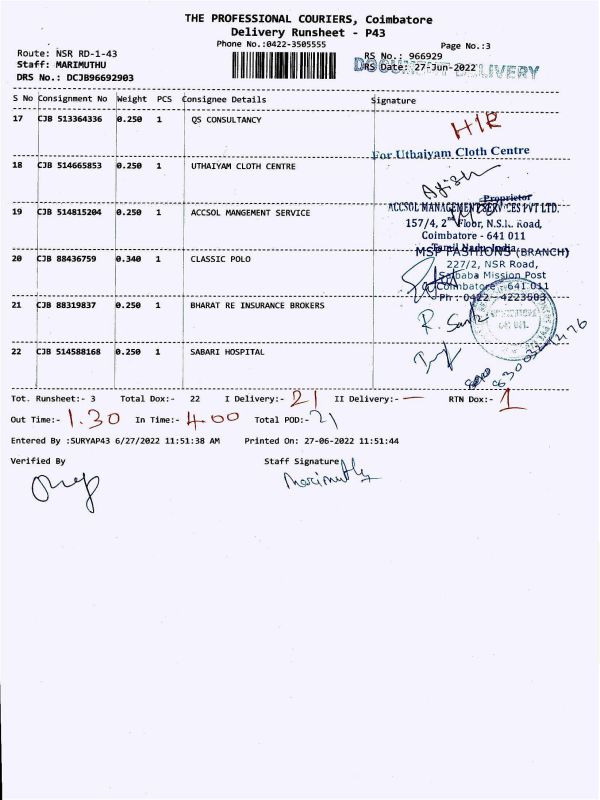 THE PROFESSIONAL COURIERS, Coimbatore
Delivery Runsheet - P43
Phone No.:0422-3505555
Page No.:3
Route: NSR RD-1-43
RS No.: 966929
Staff: MARIMUTHU
DRS Date: 27-Jun-2022
DRS No.: DCJB96692903
S No Consignment No Weight PCS Consignee Details Signature
17 CJB 513364336 0.250 1 QS CONSULTANCY
For Uthaiyam Cloth Centre
18 CJB 514665853 0.250 1 UTHAIYAM CLOTH CENTRE
Proprietor
ACCSOL MANAGEMENT SERVICES PVT LTD.
19 CJB 514815204 0.250 1 ACCSOL MANGEMENT SERVICE
157/4, 2nd Floor, N.S.R. Road,
Coimbatore - 641 011
Tamil Nadu, India.
MSP FASHIONS (BRANCH)
20 CJB 88436759 0.340 1 CLASSIC POLO
227/2, NSR Road,
Saibaba Mission Post
Coimbatore - 641 011
Ph : 0422 - 4223503
21 CJB 88319837 0.250 1 BHARAT RE INSURANCE BROKERS
22 CJB 514588168 0.250 1 SABARI HOSPITAL
Tot. Runsheet:- 3 Total Dox:- 22 I Delivery:- 21 II Delivery:- — RTN Dox:- 1
Out Time:- 1.30 In Time:- 4.00 Total POD:- 21
Entered By :SURYAP43 6/27/2022 11:51:38 AM Printed On: 27-06-2022 11:51:44
Verified By Staff Signature
Marimuthu